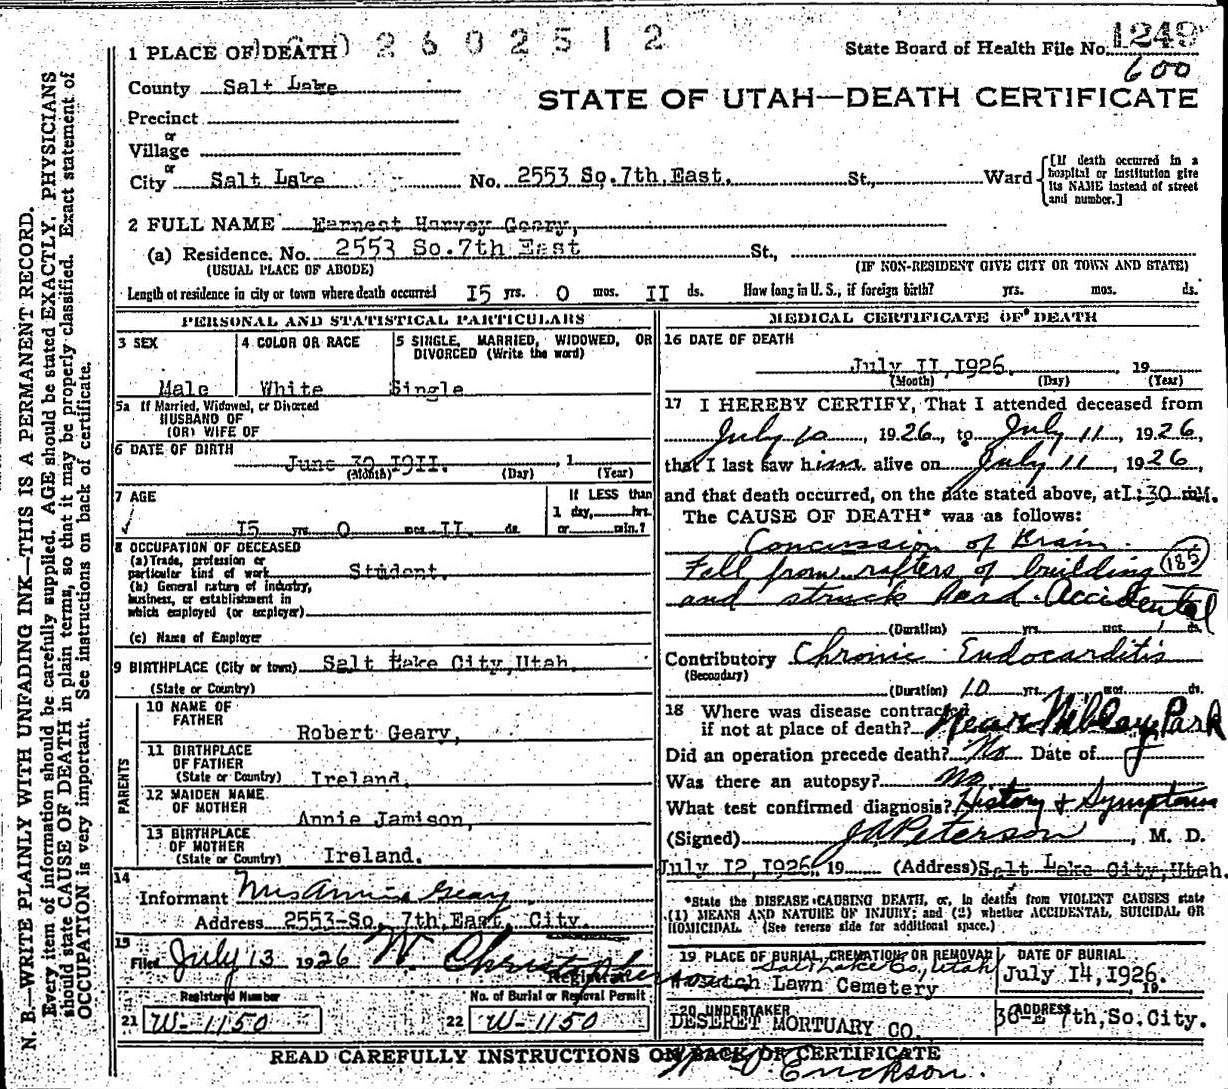 2602512
1 PLACE OF DEATH
State Board of Health File No. 1249
600
County Salt Lake
STATE OF UTAH—DEATH CERTIFICATE
Precinct
or
Village
or
City Salt Lake No. 2553 So.7th.East. St., Ward
[If death occurred in a hospital or institution give its NAME instead of street and number.]
2 FULL NAME Earnest Harvey Geary,
(a) Residence. No. 2553 So.7th East St.,
(USUAL PLACE OF ABODE) (IF NON-RESIDENT GIVE CITY OR TOWN AND STATE)
Length of residence in city or town where death occurred I5 yrs. 0 mos. II ds. How long in U. S., if foreign birth? yrs. mos. ds.
PERSONAL AND STATISTICAL PARTICULARS
3 SEX 4 COLOR OR RACE 5 SINGLE, MARRIED, WIDOWED, OR DIVORCED (Write the word)
Male White Single
5a If Married, Widowed, or Divorced
HUSBAND OF
(OR) WIFE OF
6 DATE OF BIRTH June 30 I9II. , 1
(Month) (Day) (Year)
7 AGE If LESS than
1 day, hrs.
I5 yrs. 0 mos. II ds. or min.?
8 OCCUPATION OF DECEASED
(a) Trade, profession or
particular kind of work Student.
(b) General nature of industry,
business, or establishment in
which employed (or employer)
(c) Name of Employer
9 BIRTHPLACE (City or town) Salt Lake City,Utah.
(State or Country)
PARENTS
10 NAME OF
FATHER Robert Geary,
11 BIRTHPLACE
OF FATHER
(State or Country) Ireland,
12 MAIDEN NAME
OF MOTHER Annie Jamison,
13 BIRTHPLACE
OF MOTHER
(State or Country) Ireland.
14
Informant Mrs Annie Geary
Address 2553-So. 7th,East, City.
15
Filed July 13 1926 W. Christopherson
Registrar
Registered Number No. of Burial or Removal Permit
21 W-1150 22 W-1150
MEDICAL CERTIFICATE OF DEATH
16 DATE OF DEATH
July II,I926. , 19
(Month) (Day) (Year)
17 I HEREBY CERTIFY, That I attended deceased from
July 10, 1926, to July 11, 1926,
that I last saw him alive on July 11, 1926,
and that death occurred, on the date stated above, at I:30 M.
The CAUSE OF DEATH* was as follows:
Concussion of Brain.
Fell from rafters of building 185
and struck head. Accidental
(Duration) yrs. mos. 1 ds.
Contributory Chronic Endocarditis
(Secondary)
(Duration) 10 yrs. mos. ds.
18 Where was disease contracted
if not at place of death? Near Nibley Park
Did an operation precede death? No Date of
Was there an autopsy? No
What test confirmed diagnosis? History & Symptoms
(Signed) J A Peterson, M. D.
July I2,I926, 19 (Address) Salt Lake City,Utah.
*State the DISEASE CAUSING DEATH, or, in deaths from VIOLENT CAUSES state
(1) MEANS AND NATURE OF INJURY; and (2) whether ACCIDENTAL, SUICIDAL OR
HOMICIDAL. (See reverse side for additional space.)
19 PLACE OF BURIAL, CREMATION OR REMOVAL DATE OF BURIAL
Salt Lake Co, Utah
Lawn Cemetery July I4,1926. 19
20 UNDERTAKER ADDRESS
DESERET MORTUARY CO. 36-E 7th,So.City.
READ CAREFULLY INSTRUCTIONS ON BACK OF CERTIFICATE
Erickson.
N. B.—WRITE PLAINLY WITH UNFADING INK—THIS IS A PERMANENT RECORD.
Every item of information should be carefully supplied. AGE should be stated EXACTLY. PHYSICIANS
should state CAUSE OF DEATH in plain terms, so that it may be properly classified. Exact statement of
OCCUPATION is very important. See instructions on back of certificate.